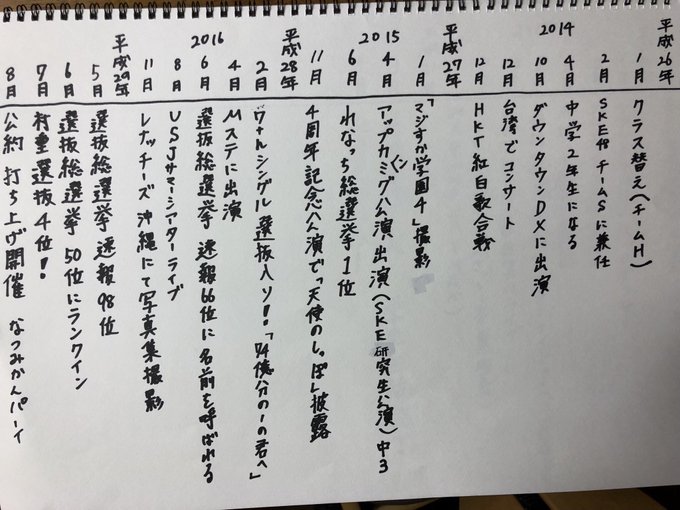 平成26年
2014
1月 クラス替え(チームH)
2月 SKE48 チームSに兼任
4月 中学2年生になる
10月 ダウンタウンDXに出演
12月 台湾でコンサート
12月 HKT紅白歌合戦
平成27年
2015
1月 「マジすか学園4」撮影
4月 アップカミング公演出演(SKE研究生公演)中3
6月 れなっち総選挙1位
11月 4周年記念公演で「天使のしっぽ」披露
平成28年
2016
2月 7thシングル選抜入り!!「74億分の1の君へ」
4月 Mステに出演
6月 選抜総選挙 速報66位に名前を呼ばれる
8月 USJサマーシアターライブ
11月 レナッチーズ 沖縄にて写真集撮影
平成29年
5月 選抜総選挙 速報98位
6月 選抜総選挙 50位にランクイン
7月 村重選抜4位!
8月 公約 打ち上げ開催 なつみかんパーイ